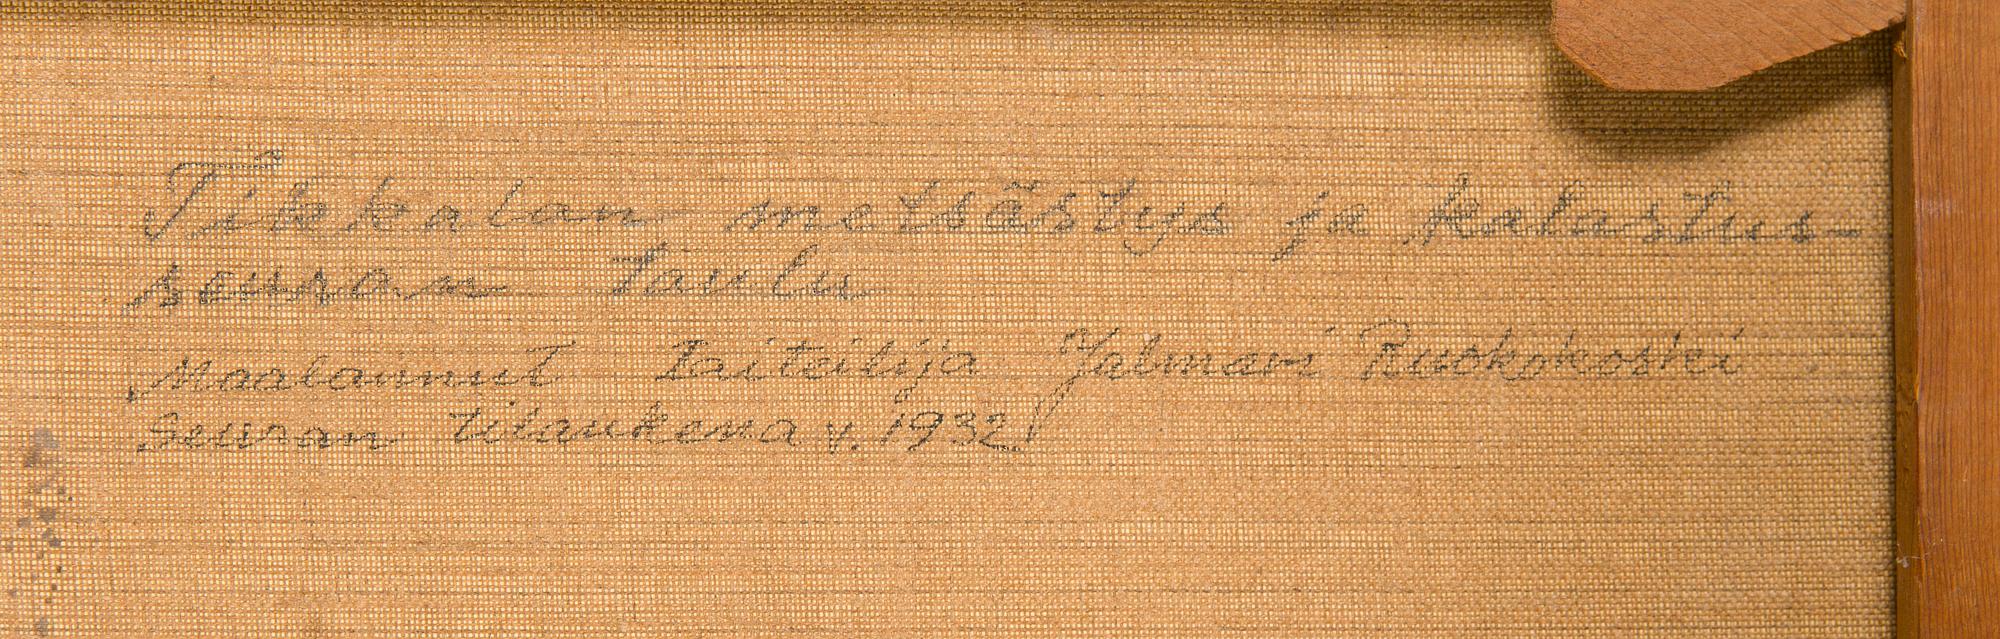 Tikkalan metsästys ja kalastus-
seuran taulu
Maalannut Taiteilija Jalmari Ruokokoski
Seuran tilauksena v. 1932